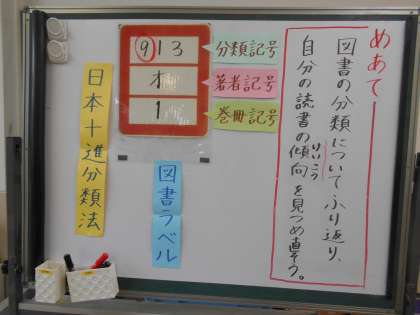 めあて
図書の分類についてふり返り、
自分の読書の傾向を見つめ直そう。
けいこう
913
分類記号
オ
著者記号
1
巻冊記号
図書ラベル
日本十進分類法